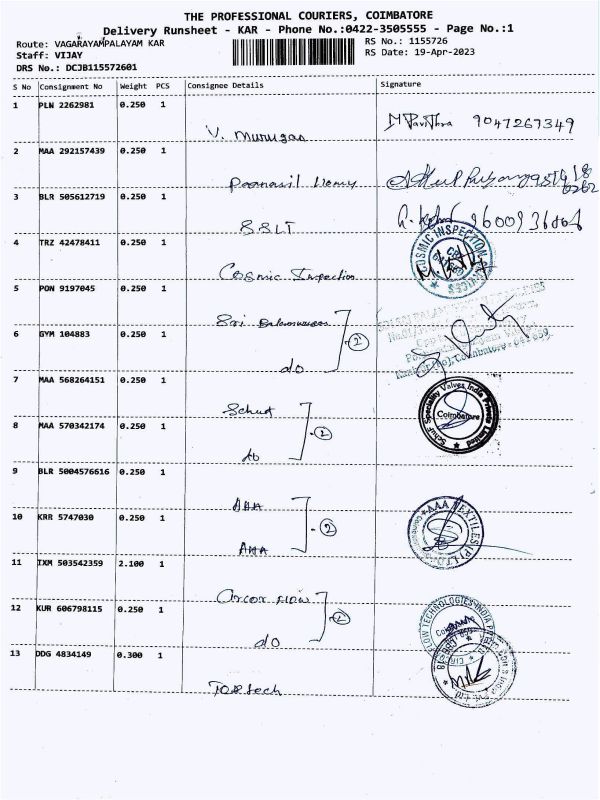 THE PROFESSIONAL COURIERS, COIMBATORE
Delivery Runsheet - KAR - Phone No.:0422-3505555 - Page No.:1
Route: VAGARAYAMPALAYAM KAR
RS No.: 1155726
Staff: VIJAY
RS Date: 19-Apr-2023
DRS No.: DCJB115572601
S No Consignment No Weight PCS Consignee Details Signature
1 PLN 2262981 0.250 1
V. Murugan
M Pavithra 9047267349
2 MAA 292157439 0.250 1
3 BLR 505612719 0.250 1
SSLT
4 TRZ 42478411 0.250 1
Cosmic Inspection
COSMIC INSPECTION SERVICES
5 PON 9197045 0.250 1
Sri Balamurugan
6 GYM 104883 0.250 1
do
2
7 MAA 568264151 0.250 1
Schuf
8 MAA 570342174 0.250 1
do
2
Schuf Speciality Valves India Private Limited
Coimbatore
9 BLR 5004576616 0.250 1
AAA
10 KRR 5747030 0.250 1
AAA
2
AAA TEXTILES (P) LTD
11 IXM 503542359 2.100 1
12 KUR 606798115 0.250 1
do
2
FLOW TECHNOLOGIES INDIA
13 DDG 4834149 0.300 1